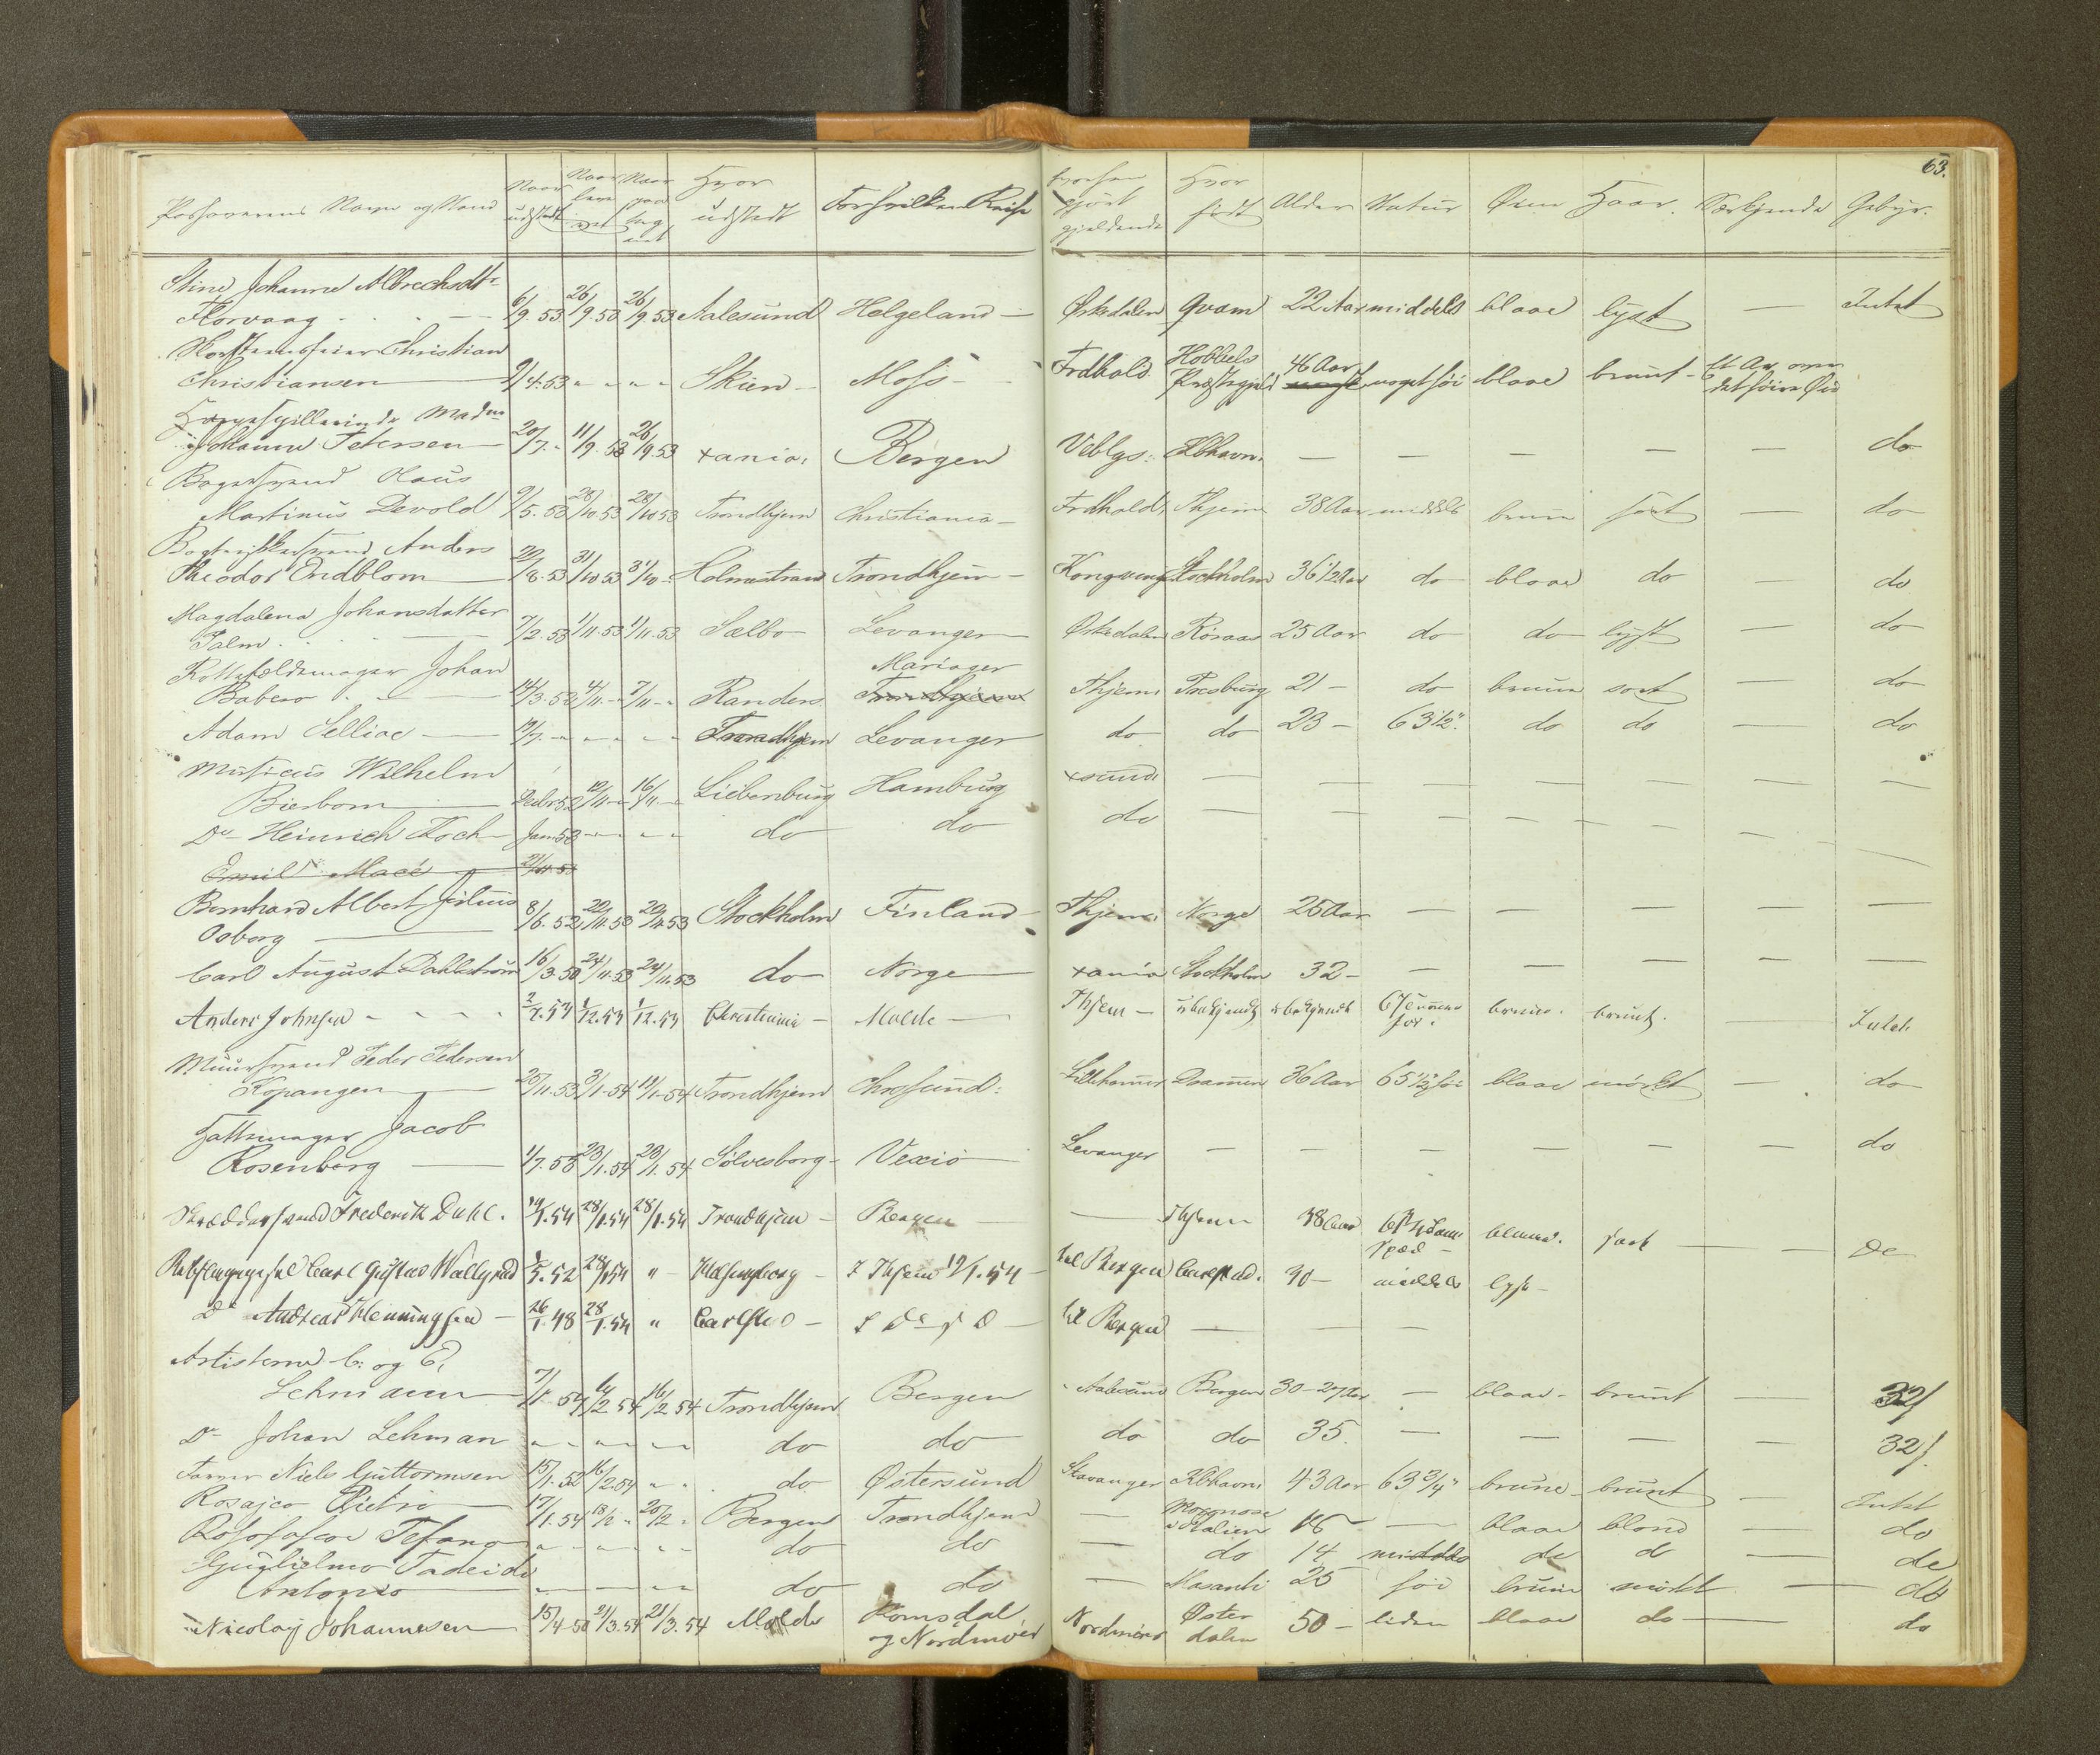 63.
Passørerens Navn og Stand | Naar udstedt | Naar leveret | Naar paategnet | Hvor udstedt | For hvilken Reise | hvorhen gjort gjældende | Hvor født | Alder | Statur | Øine | Haar. | Særkjende | Gebyr.
Stine Johanne Albrechsdtr
Horvaag 6/9.53 26/9.53 26/9.53 Aalesund Helgeland Østerdalen Qvam 22 Aar middels blaae lyst — Intet
Skorsteensfeier Christian
Christiansen 9/4.53 " " " " Skien Moss Frdhald. Hobbels Præstegjeld 46 Aar noget høi blaae brunt Et Ar over det høire Øie
Harpespillerinde Madm
Johanne Petersen 20/7 " 11/9.53 26/9.53 xania. Bergen Veblgs: Kbhavn. — — — — — — do
Bagersvend Claus
Martinus Devold 9/5.53 28/10 53 28/10 53 Trondhjem Christiania Frdhald. Thjem 38 Aar middels brune sort — do
Bogtrykkersvend Anders
Theodor Endblom 29/8.53 31/10 53 31/10 " Holmestrand Trondhjem Kongsvinger Stockholm 36 1/2 Aar do blaae do — do
Magdalena Johansdatter
Palm 7/2.53 1/11.53 1/11.53 Sælbo Levanger Østerdalen Röraas 25 Aar do do lyst — do
Rottefældemager Johan Mariager
Babero 14/3.52 4/11 " 7/11 " Randers Trondhjem Thjem. Presburg 21 — do brune sort — do
Adam Selliac 19/7 " " " " " Trondhjem Levanger do do 23 — 63 1/2" do do — do
Musicus Wilhelm
Bierbom Decbr 52 12/11 " 16/11 " Liebenburg Hamburg xsund. — — — — — — —
Do Heinrich Koch Jan 53 " " " " do do do — — — — — —
Emil Macé 21/11.53
Bernhard Albert Julius
Osborg 8/6.52 20/11.53 20/11.53 Stockholm Finland Thjem. Norge 25 Aar — — — — —
Carl August Dahlström 16/3.50 24/11.53 24/11.53 do Norge xania Stockholm 32 — — — — — —
Anders Johnsen 2/7.53 1/12.53 1/12.53 Christiania Molde Thjem — ubekjendt ubekjendt brune. brunt. — Intet
Muursvend Peder Pedersen
Kopangen 25/11.53 3/1.54 11/1.54 Trondhjem Chrssund: Lillehamer Dramen 36 Aar 65 1/2 høi blaae mörkt — do
Hattemager Jacob
Rosenberg 1/7.53 23/1.54 23/1.54 Sölvesborg Vexiö Levanger — — — — — — do
Skræddersvend Frederik Duhl. 19/1.54 28/1.54 28/1.54 Trondhjem Bergen — Thjem 38 Aar spæd sort — — do
Carl Gustav Wallgred 28/1.54 " Helsingborg Thjem 19/1.54 til Bergen Carlstad. 30 — middels lyst
Do Andreas Henningsen 26/1.48 28/1.54 " Carlstad til Bergen — — —
Artisterne C: og E.
Lehmann 7/1.54 6/2.54 16/2.54 Trondhjem Bergen Aalesund Bergen 30-27 Aar — blaae brunt — 32/
Do Johan Lehman " " " " " " do do do do 35. — — — — 32/.
Farver Niels Guttormsen 15/1.52 16/2.54 " " do Østersund Stavanger Kbhavn. 43 Aar 63 3/4" brune brunt — Intet
Rosajco Pietro 17/1.54 18/2 " 20/2 " Bergen Trondhjem — i Italien 16 — — blaae blond — do
Tefano " " " " " " do do — do 14 middels do d — do
Guglielmo Tadeidi
Antonio " " " " do do — Masanti 25 høi brune mörkt — do
Nicolay Johannesen 15/4 50 21/3.54 21/3.54 Molde Romsdal og Nordmör Nordmöre Østerdalen 50 — liden blaae do — do